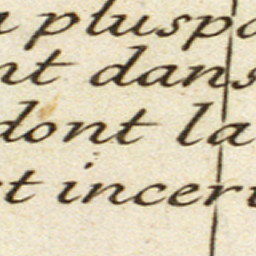 pluspa
nt dans
dont la
t incer